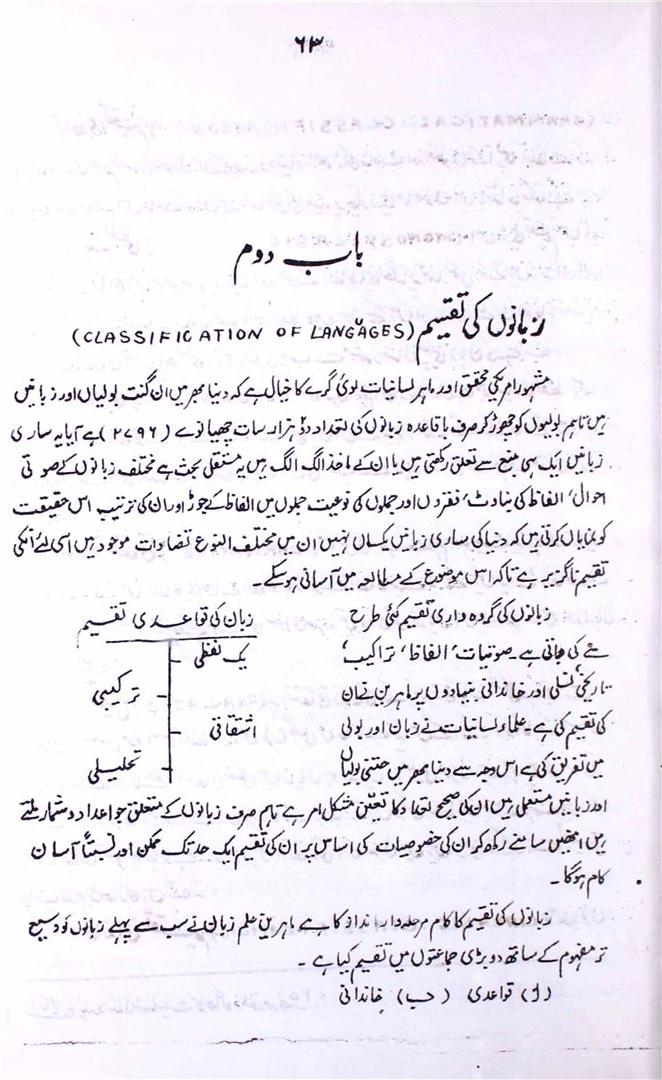 ۶۳
باب دوم
زبانوں کی تقسیم (CLASSIFICATION OF LANGUAGES)
مشہور امریکی محقق اور ماہر لسانیات لوئی گرے کا خیال ہے کہ دنیا بھر میں ان گنت بولیاں اور زبانیں
ہیں تاہم بولیوں کو چھوڑ کر صرف باقاعدہ زبانوں کی تعداد دو ہزار سات سو چھیانوے (۲۷۹۶) ہے آیا یہ ساری
زبانیں ایک ہی منبع سے تعلق رکھتی ہیں یا ان کے ماخذ الگ الگ ہیں یہ مستقل بحث ہے مختلف زبانوں کے صوتی
احوال، الفاظ کی بناوٹ، فقروں اور جملوں کی نوعیت جملوں میں الفاظ کے جوڑ اور ان کی ترتیب اس حقیقت
کو نمایاں کرتی ہیں کہ دنیا کی ساری زبانیں یکساں نہیں ان میں مختلف النوع تضادات موجود ہیں اسی لئے انکی
تقسیم ناگزیر ہے تاکہ اس موضوع کے مطالعہ میں آسانی ہو سکے۔
زبانوں کی گروہ واری تقسیم کئی طرح
سے کی جاتی ہے۔ صوتیات، الفاظ، تراکیب،
تاریخی، نسلی اور خاندانی بنیادوں پر ماہرین نے ان
کی تقسیم کی ہے، علماء لسانیات نے زبان اور بولی
میں تفریق کی ہے اس وجہ سے دنیا بھر میں جتنی بولیاں
زبان کی قواعدی تقسیم
یک لفظی
ترکیبی
اشتقاقی
تحلیلی
اور زبانیں مستعمل ہیں ان کی صحیح تعداد کا تعیّن مشکل امر ہے تاہم صرف زبانوں کے متعلق جو اعداد و شمار ملتے
ہیں انھیں سامنے رکھ کر ان کی خصوصیات کی اساس پر ان کی تقسیم ایک حد تک ممکن اور نسبتاً آسان
کام ہوگا۔
زبانوں کی تقسیم کا کام مرحلہ وار انداز کا ہے ماہرین علم زبان نے سب سے پہلے زبانوں کو وسیع
تر مفہوم کے ساتھ دو بڑی جماعتوں میں تقسیم کیا ہے۔
(ا) قواعدی (ب) خاندانی